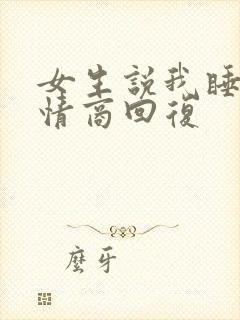 女生說我睡
情商回復
麼牙